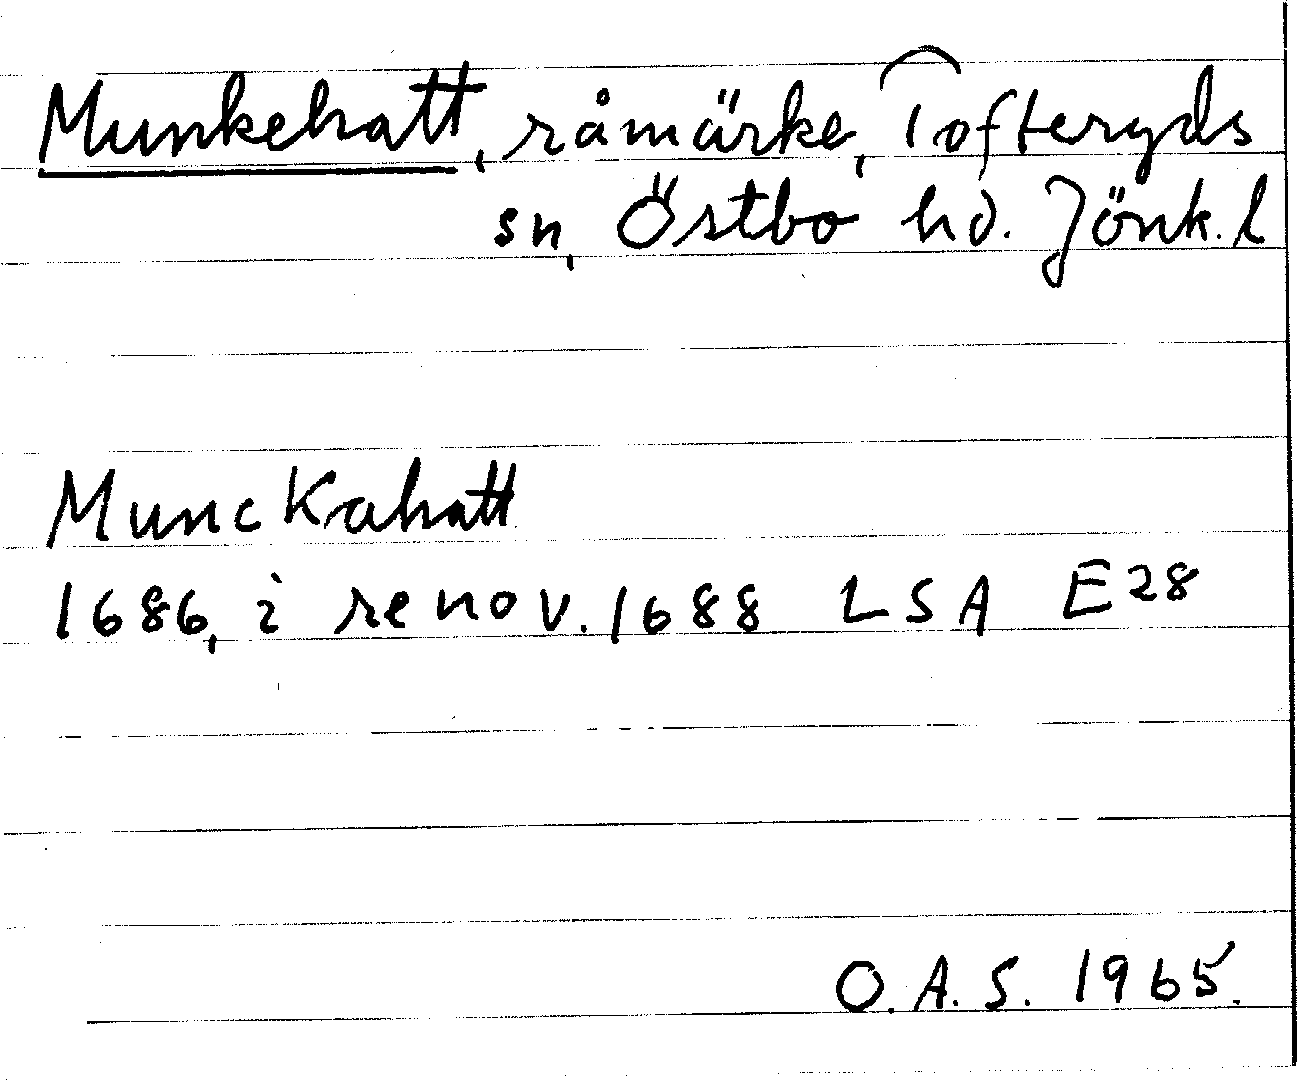 Munkehatt, råmärke, Tofteryds
sn, Östbo hd. Jönk. l
Munckahatt
1686, i renov. 1688 LSA E28
O.A.S. 1965.